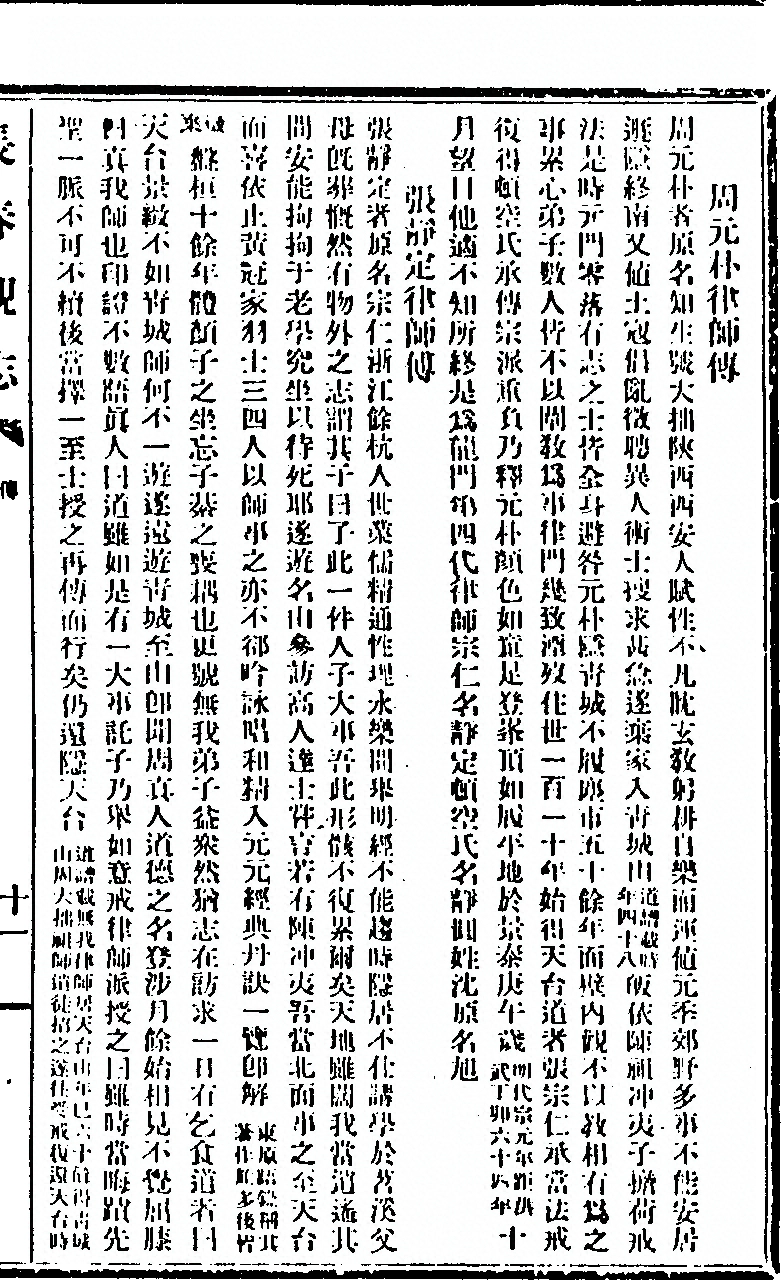 周元朴律師傳
周元朴者原名知生號大拙陝西西安人賦性不凡耽玄教躬耕自樂而運值元季郊野多事不能安居
遯隱終南又值土寇倡亂徵聘異人術士搜求甚急遂棄家入青城山道譜載時年四十八皈依陳祖冲夷子擔荷戒
法是時元門零落有志之士皆全身避咎元朴隱青城不履塵市五十餘年面壁內觀不以教相有為之
事累心弟子數人皆不以闡教為事律門幾致湮歿住世一百一十年始得天台道者張宗仁承當法戒
復得頓空氏承傳宗派重負乃釋元朴顏色如童是登嶽頂如履平地於景泰庚午歲明代宗元年距洪武丁卯六十四年十
月望日他適不知所終是為龍門第四代律師宗仁名靜定頓空氏名靜圓姓沈原名旭
張靜定律師傳
張靜定者原名宗仁浙江餘杭人世業儒精通性理永樂間舉明經不能趨時隱居不仕講學於苕溪父
母既葬慨然有物外之志謂其子曰了此一件人子大事吾此形骸不復累爾矣天地雖闊我當逍遙其
間安能拘拘于老學究坐以待死耶遂遊名山參訪高人達士嘗言若有陳冲夷吾當北面事之至天台
而喜依止黃冠家羽士三四人以師事之亦不卻吟詠唱和精入元元經典丹訣一覽即解東原語錄稱其著作頗多後皆
盤桓十餘年體顏子之坐忘子綦之喪耦也更號無我弟子益衆然猶志在訪求一日有乞食道者曰
天台景緻不如青城師何不一遊遂遠遊青城至山即聞周真人道德之名登涉月餘始相見不覺屈膝
曰真我師也印證不數語真人曰道雖如是有一大事託子乃舉如意戒律師派授之曰雖時當晦蹟先
聖一脈不可不續後當擇一至士授之再傳而行矣仍還隱天台道譜載無我律師居天台山年已六十值得青城山周大拙祖師遣徒招之遂往受戒復還天台時
長春觀志
傳
十一